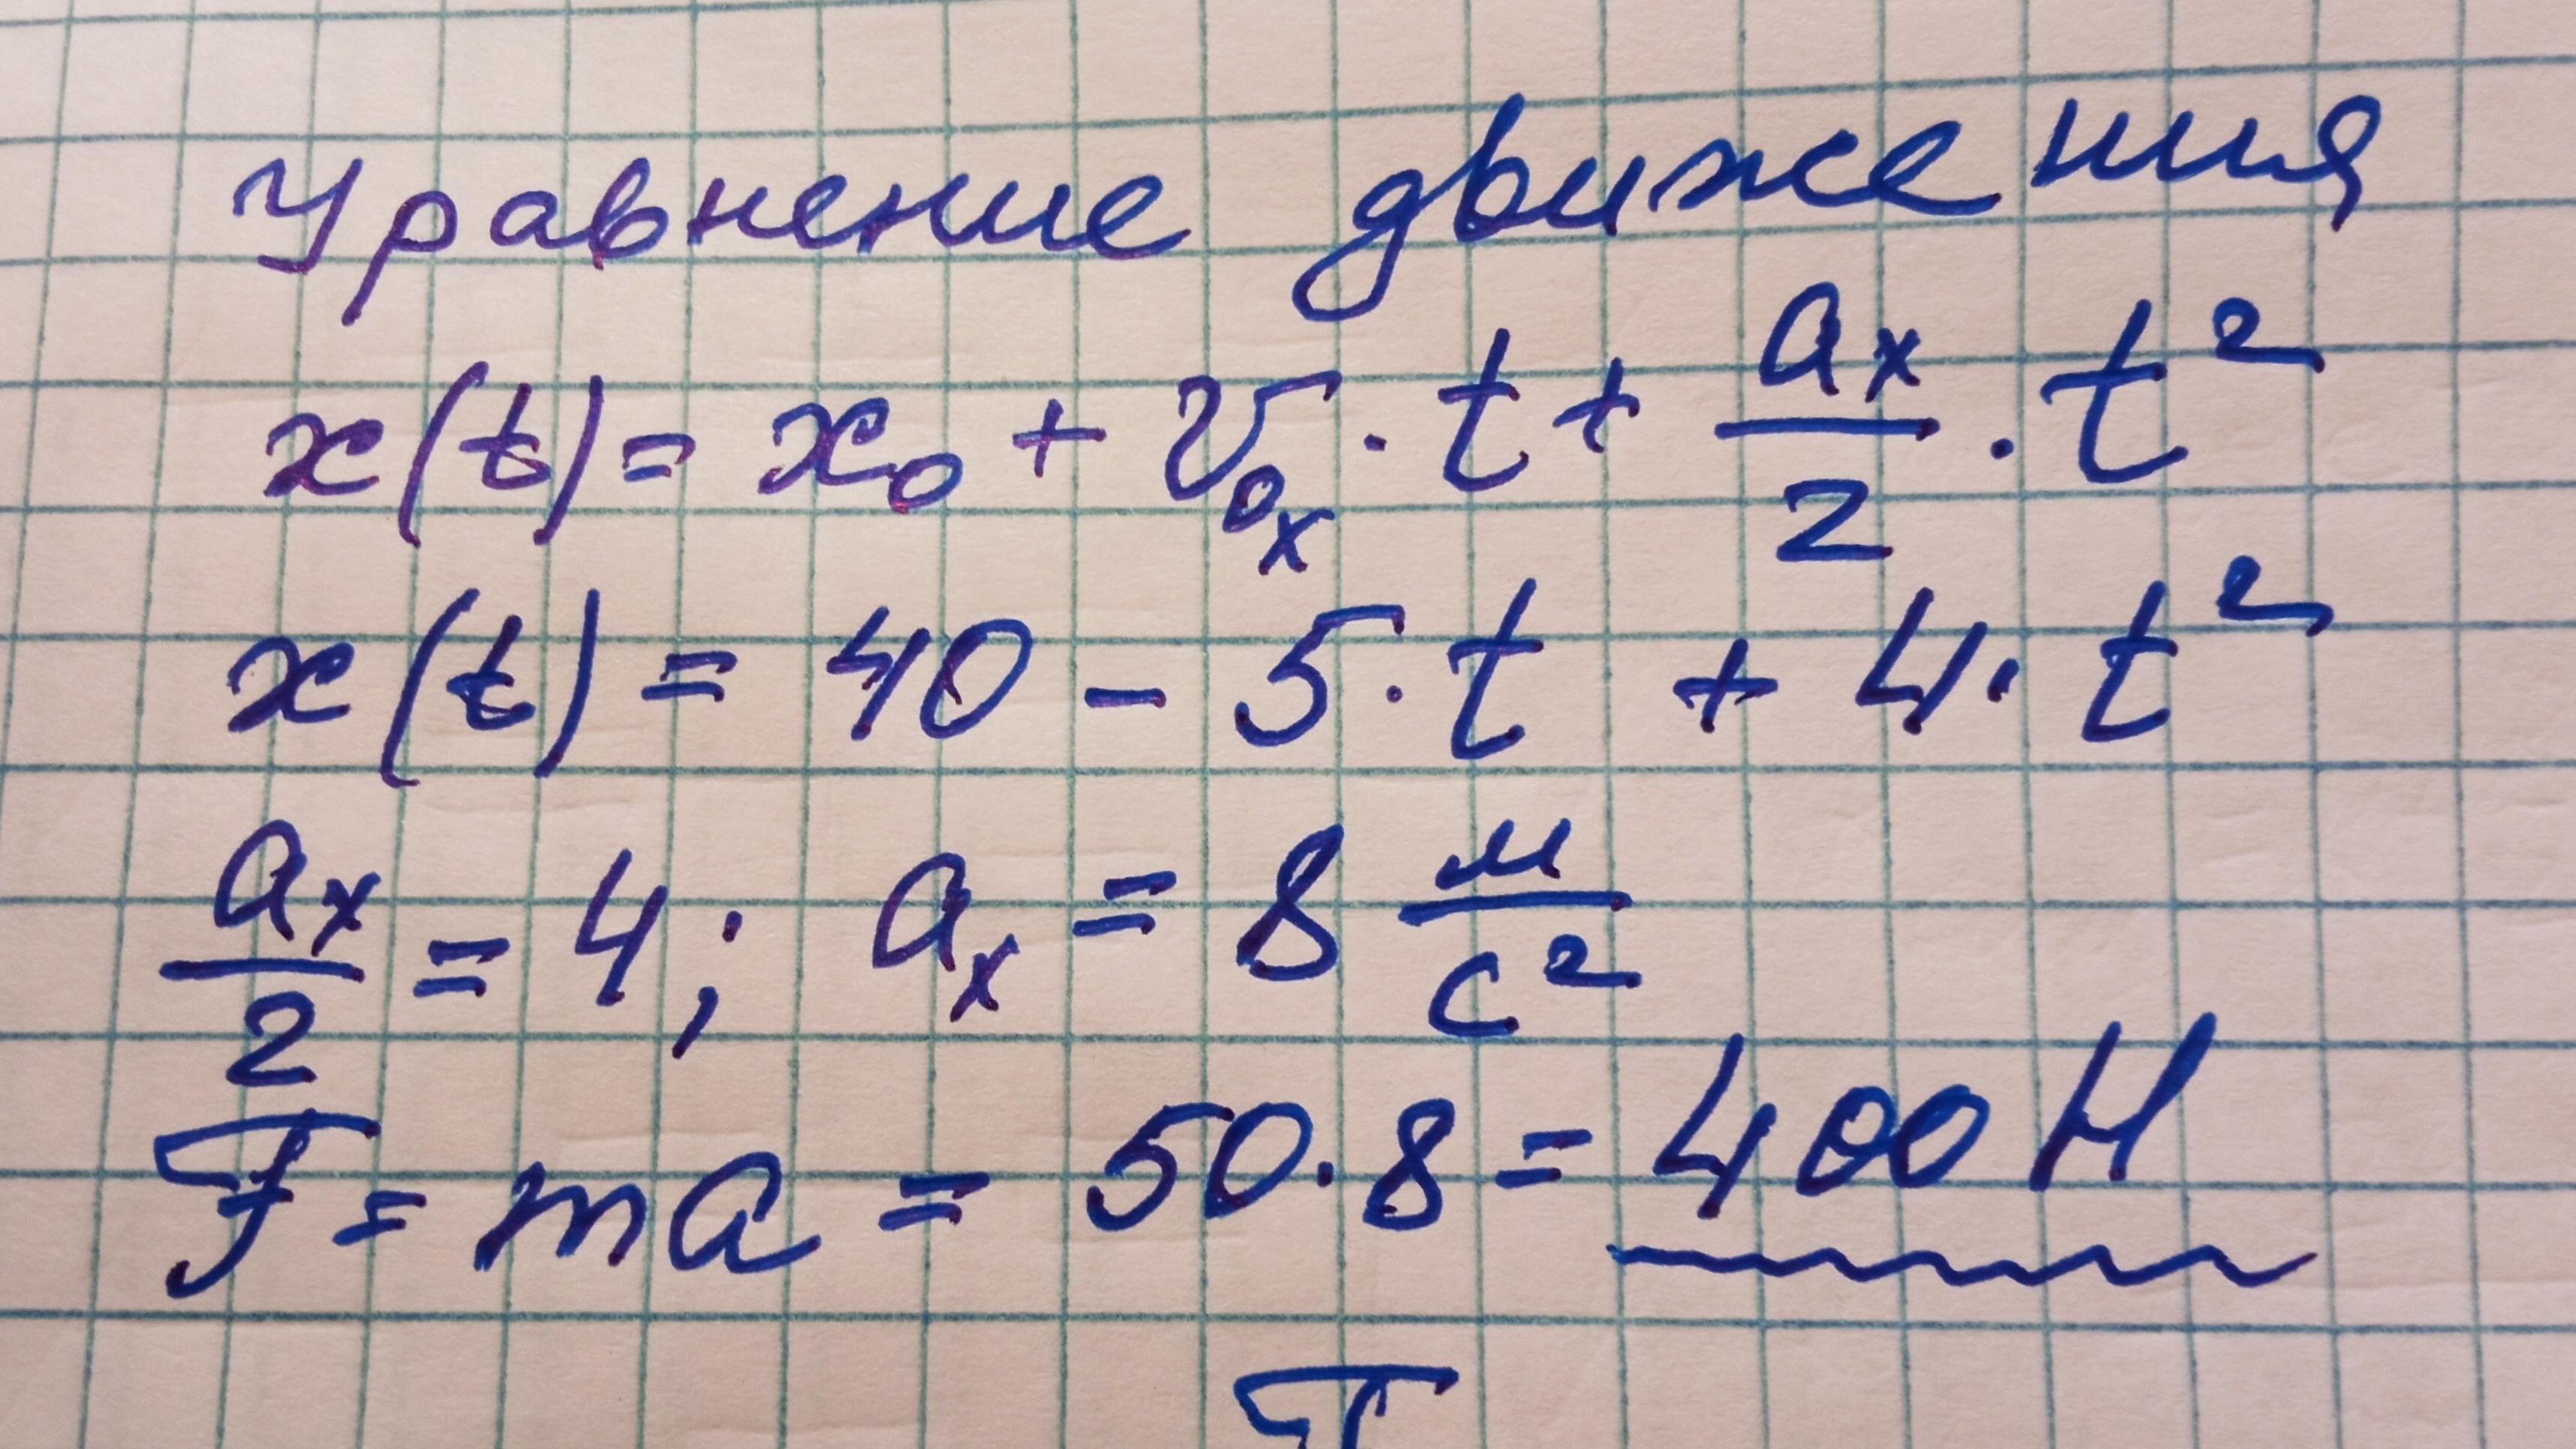 Уравнение движения
x(t) = x₀ + v₀ₓ · t + aₓ/2 · t²
x(t) = 40 - 5 · t + 4 · t²
aₓ/2 = 4; aₓ = 8 м/с²
F = ma = 50 · 8 = 400 Н